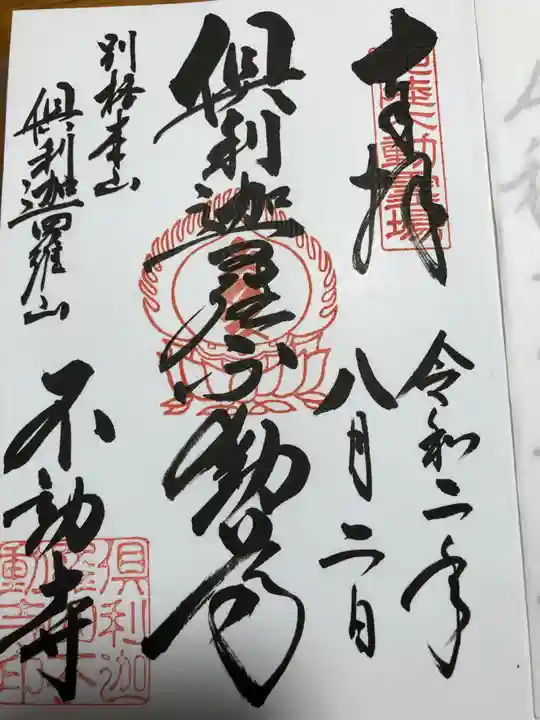 奉拝
令和二年
八月二日
倶利迦羅不動尊
別格本山
倶利迦羅山
不動寺
倶利迦
羅山不
動寺印